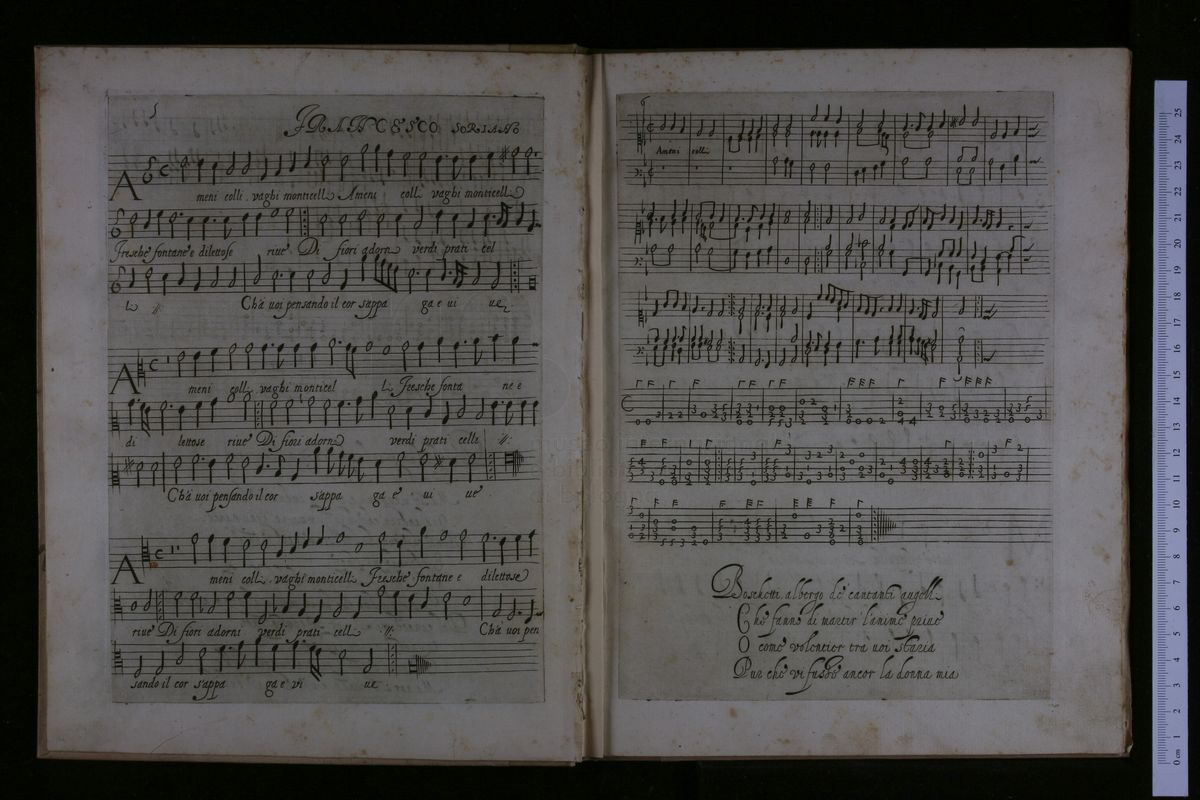 FRANCESCO SORIANO
Ameni colli vaghi monticell Ameni coll vaghi monticell
Fresche fontane e dilettose riue Di fiori adorn verdi prati cel
L Ch'a uoi pensando il cor s'appa ga e ui ue
Ameni coll vaghi monticel L Fresche fonta ne e
di lettose riue Di fiori adorn verdi prati celli
Ch'a uoi pensando il cor s'appa ga e ui ue
Ameni coll vaghi monticell Fresche fontane e dilettose
riue Di fiori adorni verdi prati cell Ch'a uoi pen
sando il cor s'appa ga e vi ue
6
Ameni coll
Boschetti albergo de cantanti augell
Che fanno di martir l'anime priue
O come volentier tra uoi staria
Pur che vi fusse ancor la donna mia
0 cm 1 2 3 4 5 6 7 8 9 10 11 12 13 14 15 16 17 18 19 20 21 22 23 24 25